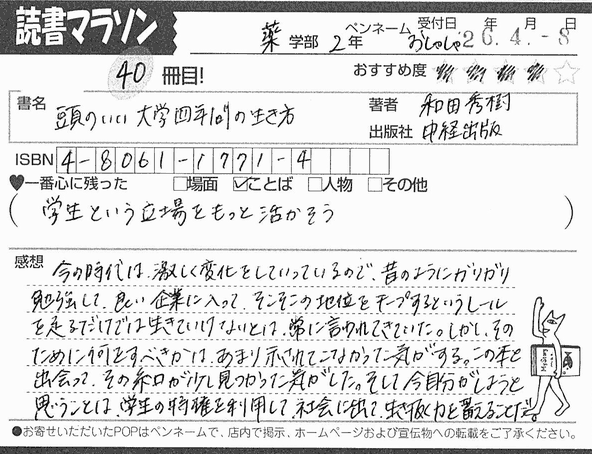 読書マラソン
薬 学部 2年 ペンネーム おしゃしゃ 受付日 年 月 日
26.4.-8
40 冊目! おすすめ度 ★★★★☆
書名 頭のいい大学四年間の生き方
著者 和田秀樹
出版社 中経出版
ISBN 4-8061-1771-4
♥一番心に残った □場面 ☑ことば □人物 □その他
( 学生という立場をもっと活かそう )
感想 今の時代は、激しく変化をしていっているので、昔のようにガリガリ
勉強して、良い企業に入って、そこそこの地位をキープするというレール
を走るだけでは生きていけないとは、常に言われてきていた。しかし、その
ために何をすべきかは、あまり示されてこなかった気がする。この本と
出会って、その糸口が少し見つかった気がした。そして今自分がしようと
思うことは、学生の特権を利用して、社会に出て、生き抜く力を蓄えることだ。
●お寄せいただいたPOPはペンネームで、店内で掲示、ホームページおよび宣伝物への転載をご了承ください。